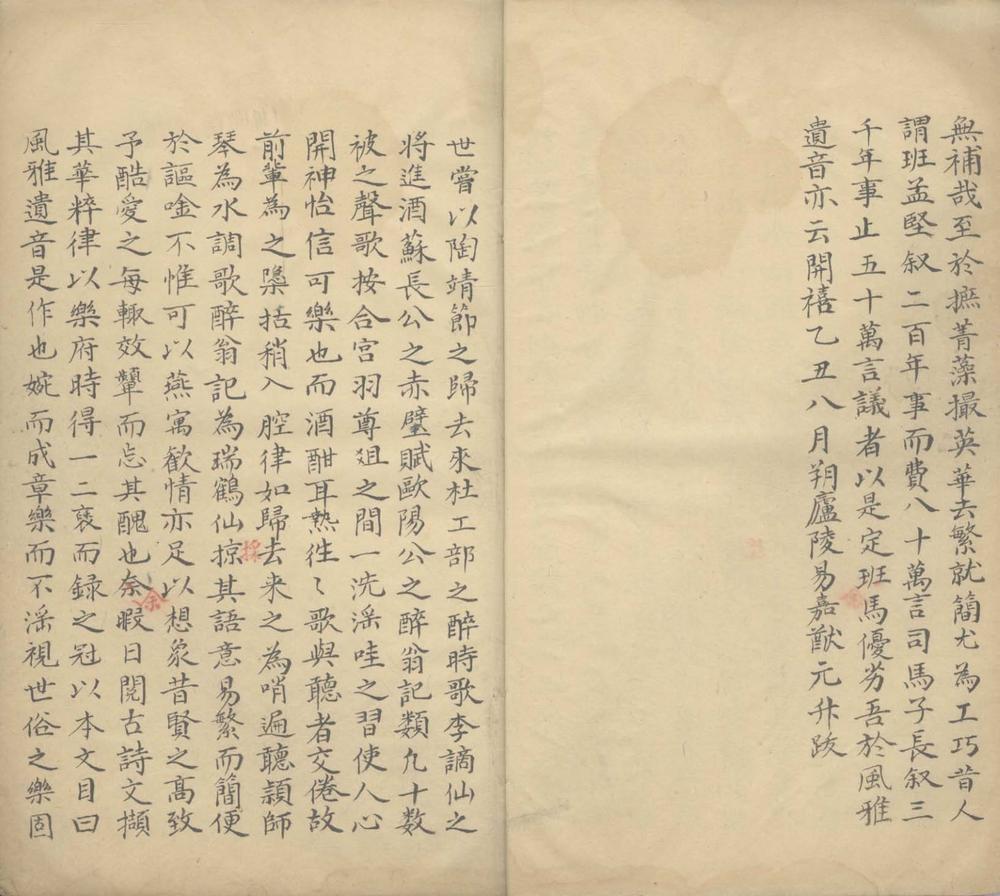 無補哉至於摭菁藻撮英華去繁就簡尤為工巧昔人
謂班孟堅叙二百年事而費八十萬言司馬子長叙三
千年事止五十萬言議者以是定班馬優劣吾於風雅
遺音亦云開禧乙丑八月朔廬陵易嘉猷元升跋
世嘗以陶靖節之歸去來杜工部之醉時歌李謫仙之
將進酒蘇長公之赤壁賦歐陽公之醉翁記類凢十數
被之聲歌按合宮羽尊俎之間一洗滛哇之習使人心
開神怡信可樂也而酒酣耳熱徃〻歌與聽者交倦故
前輩為之檃括稍入腔律如歸去来之為哨遍聽頴師
琴為水調歌醉翁記為瑞鶴仙掠其語意易繁而簡便
於謳唫不惟可以燕寓歡情亦足以想象昔賢之高致
予酷愛之每輙效顰而忘其醜也余暇日閱古詩文擷
其華粹律以樂府時得一二裒而録之冠以本文目曰
風雅遺音是作也婉而成章樂而不滛視世俗之樂固